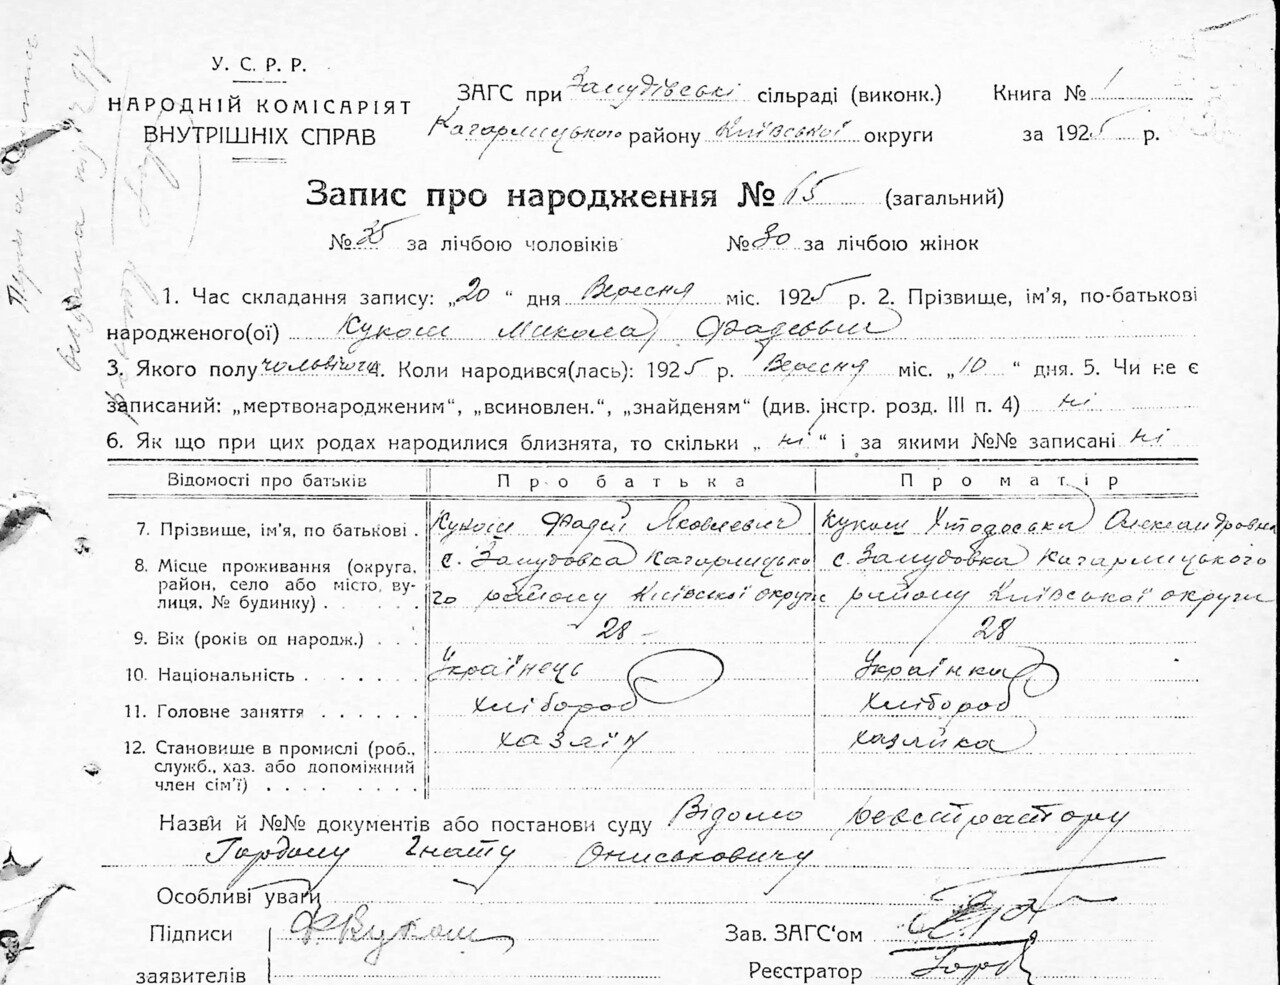 У. С. Р. Р.
НАРОДНІЙ КОМІСАРІЯТ
ВНУТРІШНІХ СПРАВ
ЗАГС при Замудівські сільраді (виконк.) Книга № 1
Кагарлицького району Київської округи за 1925 р.
Запис про народження № 65 (загальний)
№ 35 за лічбою чоловіків № 30 за лічбою жінок
1. Час складання запису: „20“ дня Вересня міс. 1925 р. 2. Прізвище, ім'я, по-батькові
народженого(ої) Кукош Микола Фадеевич
3. Якого полу чоловічого 4. Коли народився(лась): 1925 р. Вересня міс. „10“ дня. 5. Чи не є
записаний: „мертвонародженим“, „всиновлен.“, „знайденям“ (див. інстр. розд. III п. 4) ні
6. Як що при цих родах народилися близнята, то скільки „ні“ і за якими №№ записані ні
Відомості про батьків Про батька Про матір
7. Прізвище, ім'я, по батькові . Кукош Фадей Яковлевич Кукош Хтодоська Олександровна
8. Місце проживання (округа, район, село або місто, вулиця, № будинку) с. Замудовка Кагарлицького району Київської округи с. Замудовка Кагарлицького району Київської округи
9. Вік (років од народж.) . . . 28 28
10. Національність . . . . . . . Українець Українка
11. Головне заняття . . . . . . Хлібороб Хлібороб
12. Становище в промислі (роб., служб., хаз. або допоміжний член сім'ї) хазяїн хазяйка
Назви й №№ документів або постанови суду Відомо реєстратору
Гордому Гнату Ониськовичу
Особливі уваги
Підписи Ф Кукош Зав. ЗАГС‘ом
заявителів Реєстратор